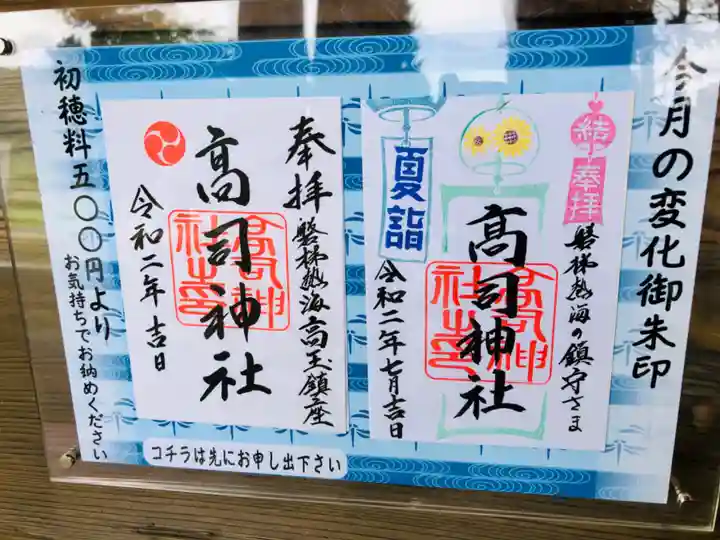 今月の変化御朱印
結
奉拝
磐梯熱海の鎮守さま
高司神社
夏詣
令和二年七月吉日
奉拝
磐梯熱海高玉鎮座
高司神社
令和二年吉日
初穂料五〇〇円より
お気持ちでお納めください
コチラは先にお申し出下さい